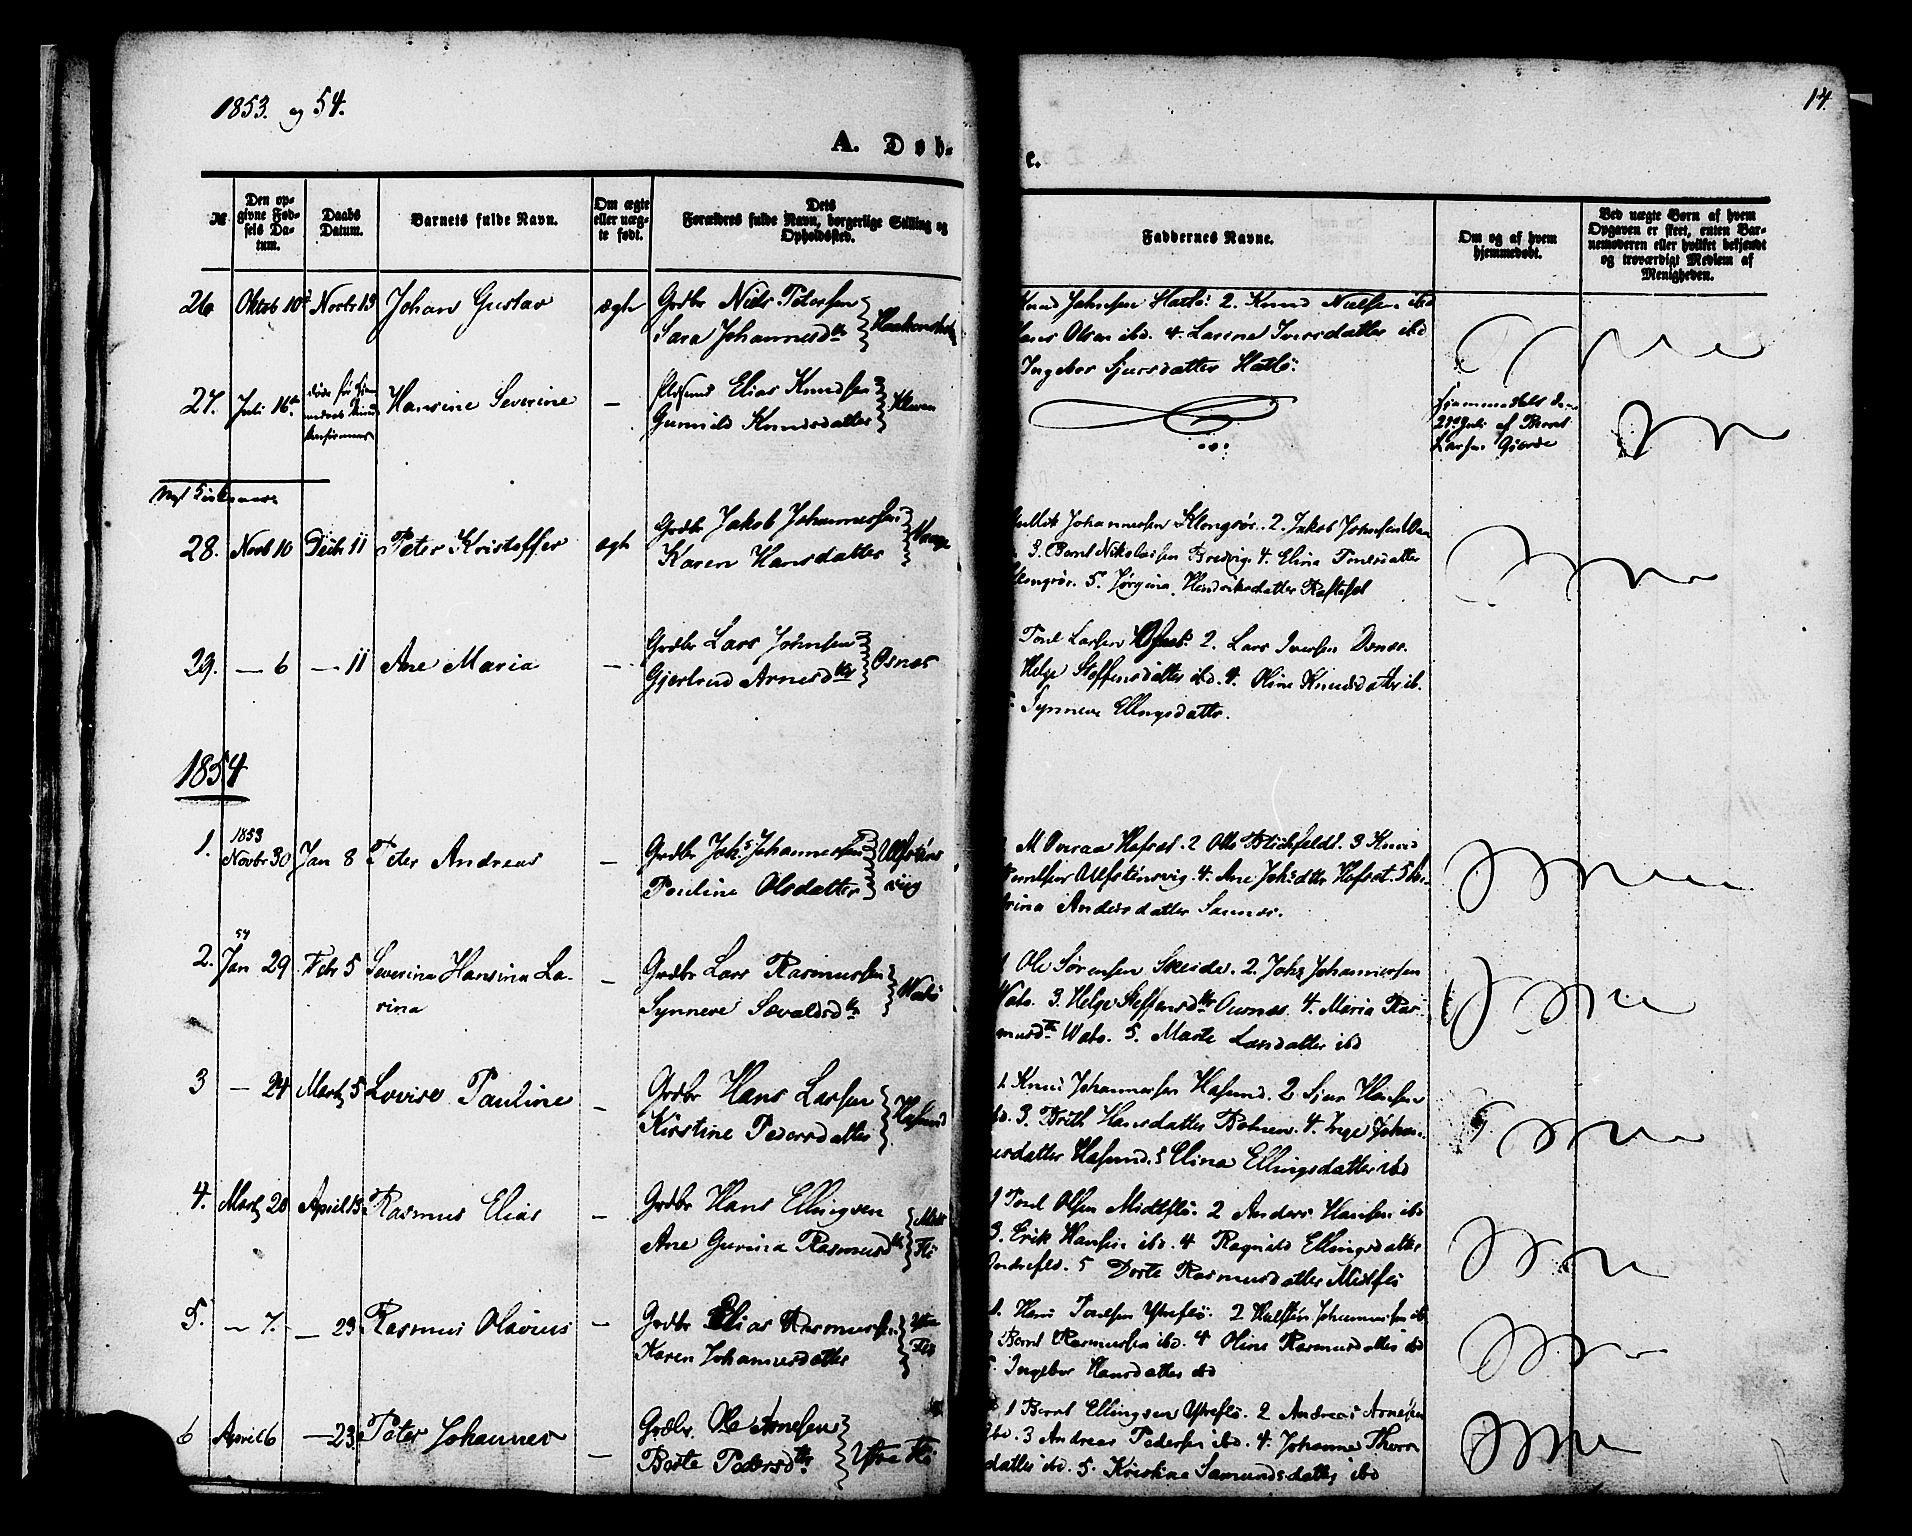 1853. og 54.
14.
A. Døb-
e.
№
Den op-
givne Fød-
sels Da-
tum.
Daabs
Datum.
Barnets fulde Navn.
Om ægte
eller uæg-
te født.
Dets
Forældres fulde Navn, borgerlige Stilling og
Opholdssted.
Faddernes Navne.
Om og af hvem
hjemmedøbt.
Ved uægte Børn af hvem
Opgaven er skeet, enten Bar-
nemoderen eller hvilket bekjendt
og troværdigt Medlem af
Menigheden.
26 Oktob 10 Novbr 13 Johan Gustav ægte Grdbr Niels Petersen
Sara Johannesdtr
Knud Johnsen Hatlø: 2. Knud Nielsen ibd
Hans Olsen ibd. 4. Lasene Iversdatter ibd
Ingebor Sjursdatter Hatlø:
27. Juli 16 døde før Hansine Severine — Elias Knudsen
Gunnild Knudsdatter Kleven
Hjemmedøbt
Juli af Bernt
Larsen Gjerde
28. Novb 10 Decb 11 Peter Kristoffer ægte Grdbr Jakob Johannessen
Karen Hansdatter Vaage
Johannessen Klongsør. 2. Jakob Johnsen
3. Bernt Nikolaisen Bredvig. 4. Elina Toresdatter
Klongsør. 5. Jørgina Hendriksdatter Raftesæt
29. — 6 — 11 Ane Maria — Grdbr Lars Johnsen
Gjertrud Arnesdtr Osnes
Poul Larsen Osnes: 2. Lars Iversen Osnes.
Helge Steffensdatter ibd. 4. Oline Knudsdatter ib.
Synneve Ellingsdatter.
1854
1. 1853 Novbr 30 Jan 8 Peter Andreas — Grdbr Johs Johannessen
Pauline Olsdatter Ulfstens
viig
M Overaa Hofset. 2 Ole Blichfeldt. 3 Knud
Ulfstensvig. 4. Ane Johsdatter Hofset. 5
trina Andersdatter Sannes.
2. 54 Jan 29 Febr 5 Severina Hansina La-
rina — Grdbr Lars Rasmussen
Synneve Sevaldsdtr Watø
1 Ole Sørensen Skeide. 2. Johs Johannessen
Watø. 3. Helge Steffensdtr Aurnes. 4. Maria Ras-
musdtr Watø. 5. Marte Larsdatter ibd
3 — 24 Marts 5 Lovise Pauline — Grdbr Hans Larsen
Kirstine Pedersdatter Hasund
1. Knud Johannessen Hasund. 2 Sjur Hansen
ibd. 3. Brith Hansdatter Botnen. 4. Inge Johan-
nesdatter Hasund. 5 Elina Ellingsdatter ibd
4. Marts 20 April 13 Rasmus Elias — Grdbr Hans Ellingsen
Ane Gurina Rasmusdtr Midt
Flø
1 Poul Olsen Midtflø. 2 Anders Hansen ibd
3. Erik Hansen ibd. 4 Ragnild Ellingsdatter
Indreflø. 5 Dorte Rasmusdatter Midtflø
5. — 7. — 23 Rasmus Olavius — Grdbr Elias Rasmussen
Karen Johannesdatter Ytre
Flø
1. Hans Poulsen Ytreflø. 2 Halsten Johannessen ib
3 Bernt Rasmussen ibd. 4 Oline Rasmusdatter ibd
5. Ingebor Hansdatter ibd
6 April 6 — 23. Peter Johannes — Grdbr. Ole Arnesen
Berte Pedersdtr Ytre Flø
1 Bernt Ellingsen Ytreflø. 2 Andreas Arnesen
ibd. 3 Andreas Pedersen ibd. 4. Johanne Thors
datter ibd. 5. Kristina Samundsdatter ibd